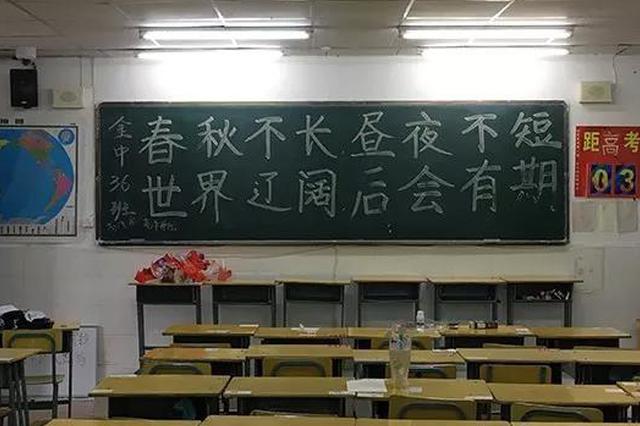 春秋不长昼夜不短
世界辽阔后会有期
金中
36
班
距高考
03